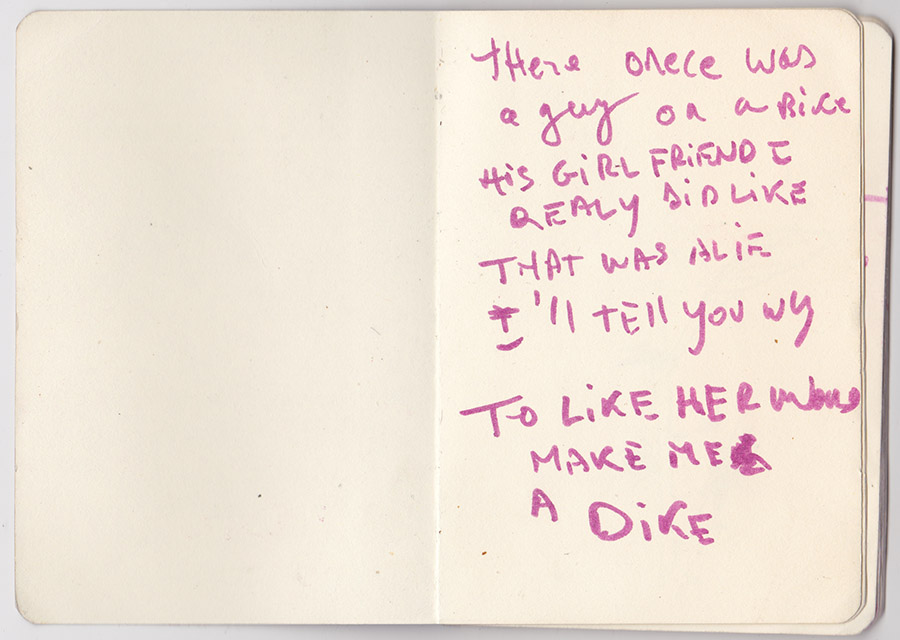 tHere onece was
a guy on a BiKe
HiS GiRLFRiEND I
REALY DiDLiKE
THAT WAS ALiE
I'll tEll you wy
To LiKE HER would
MAKE ME
A DiKE